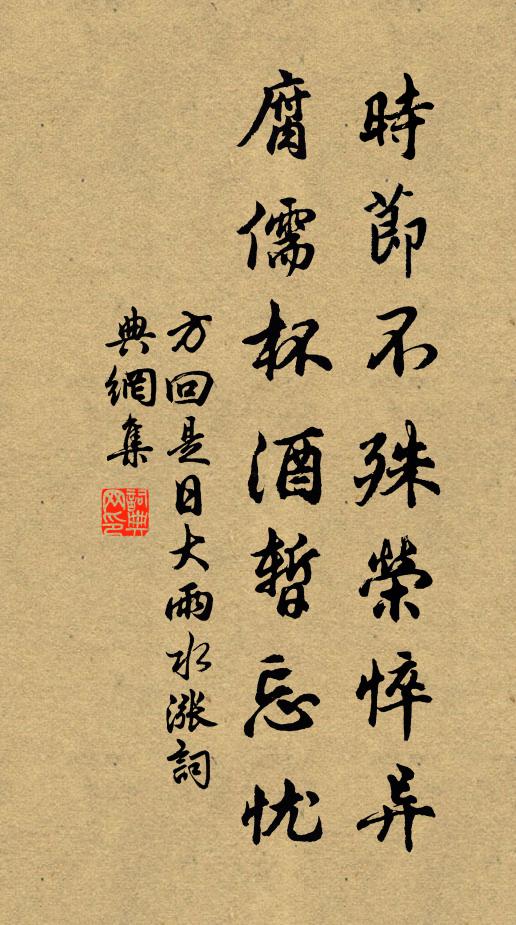 時節不殊榮悴异
腐儒杯酒暫忘忧
方回是日大雨水漲詞
典網集
詞典网印